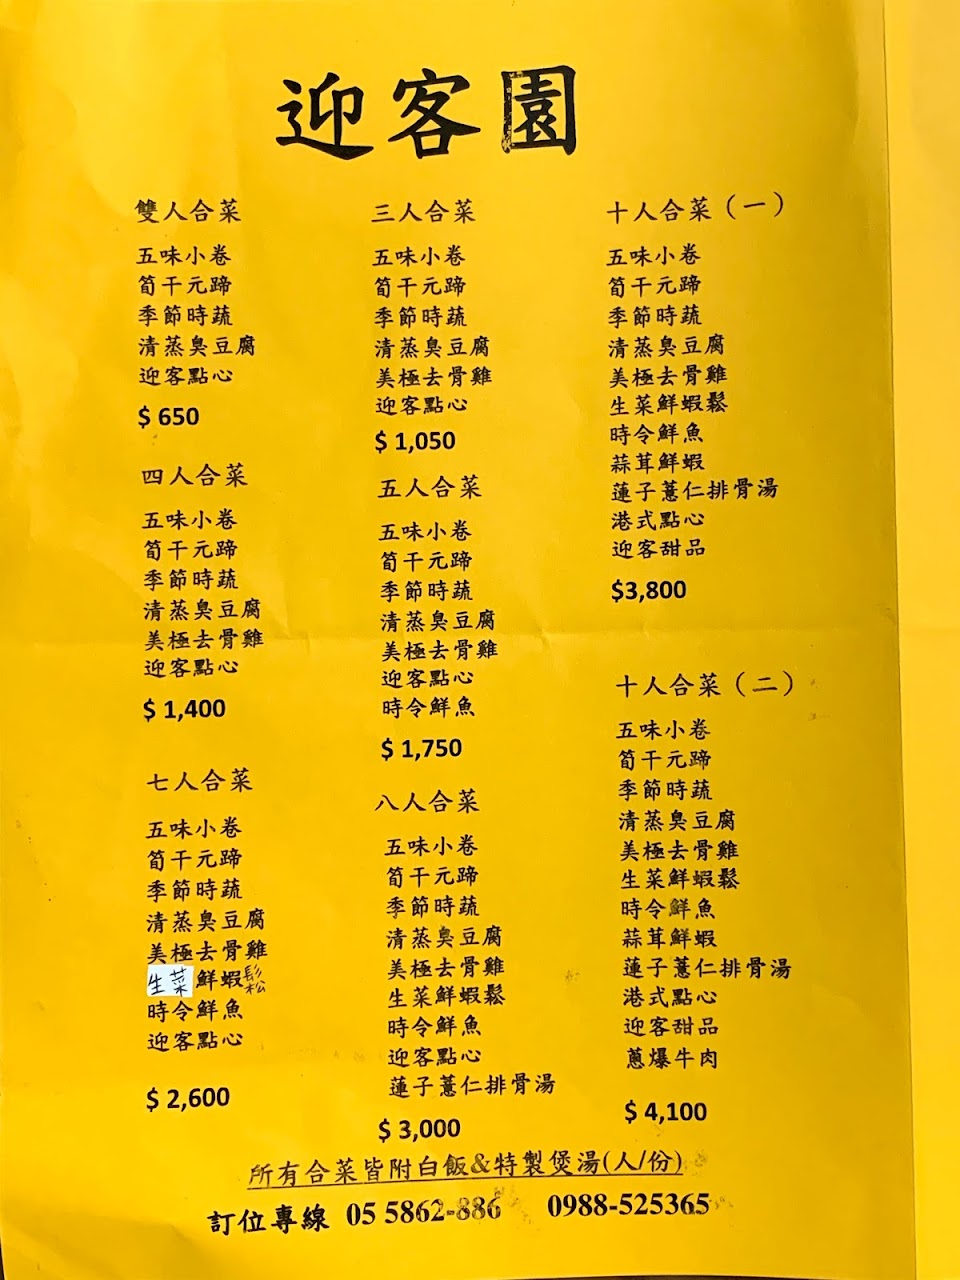 迎客園
雙人合菜
五味小卷
筍干元蹄
季節時蔬
清蒸臭豆腐
迎客點心
$ 650
三人合菜
五味小卷
筍干元蹄
季節時蔬
清蒸臭豆腐
美極去骨雞
迎客點心
$ 1,050
十人合菜（一）
五味小卷
筍干元蹄
季節時蔬
清蒸臭豆腐
美極去骨雞
生菜鮮蝦鬆
時令鮮魚
蒜茸鮮蝦
蓮子薏仁排骨湯
港式點心
迎客甜品
$3,800
四人合菜
五味小卷
筍干元蹄
季節時蔬
清蒸臭豆腐
美極去骨雞
迎客點心
$ 1,400
五人合菜
五味小卷
筍干元蹄
季節時蔬
清蒸臭豆腐
美極去骨雞
迎客點心
時令鮮魚
$ 1,750
十人合菜（二）
五味小卷
筍干元蹄
季節時蔬
清蒸臭豆腐
美極去骨雞
生菜鮮蝦鬆
時令鮮魚
蒜茸鮮蝦
蓮子薏仁排骨湯
港式點心
迎客甜品
蔥爆牛肉
$ 4,100
七人合菜
五味小卷
筍干元蹄
季節時蔬
清蒸臭豆腐
美極去骨雞
生菜鮮蝦鬆
時令鮮魚
迎客點心
$ 2,600
八人合菜
五味小卷
筍干元蹄
季節時蔬
清蒸臭豆腐
美極去骨雞
生菜鮮蝦鬆
時令鮮魚
迎客點心
蓮子薏仁排骨湯
$ 3,000
所有合菜皆附白飯&特製煲湯(人/份)
訂位專線 05 5862-886 0988-525365